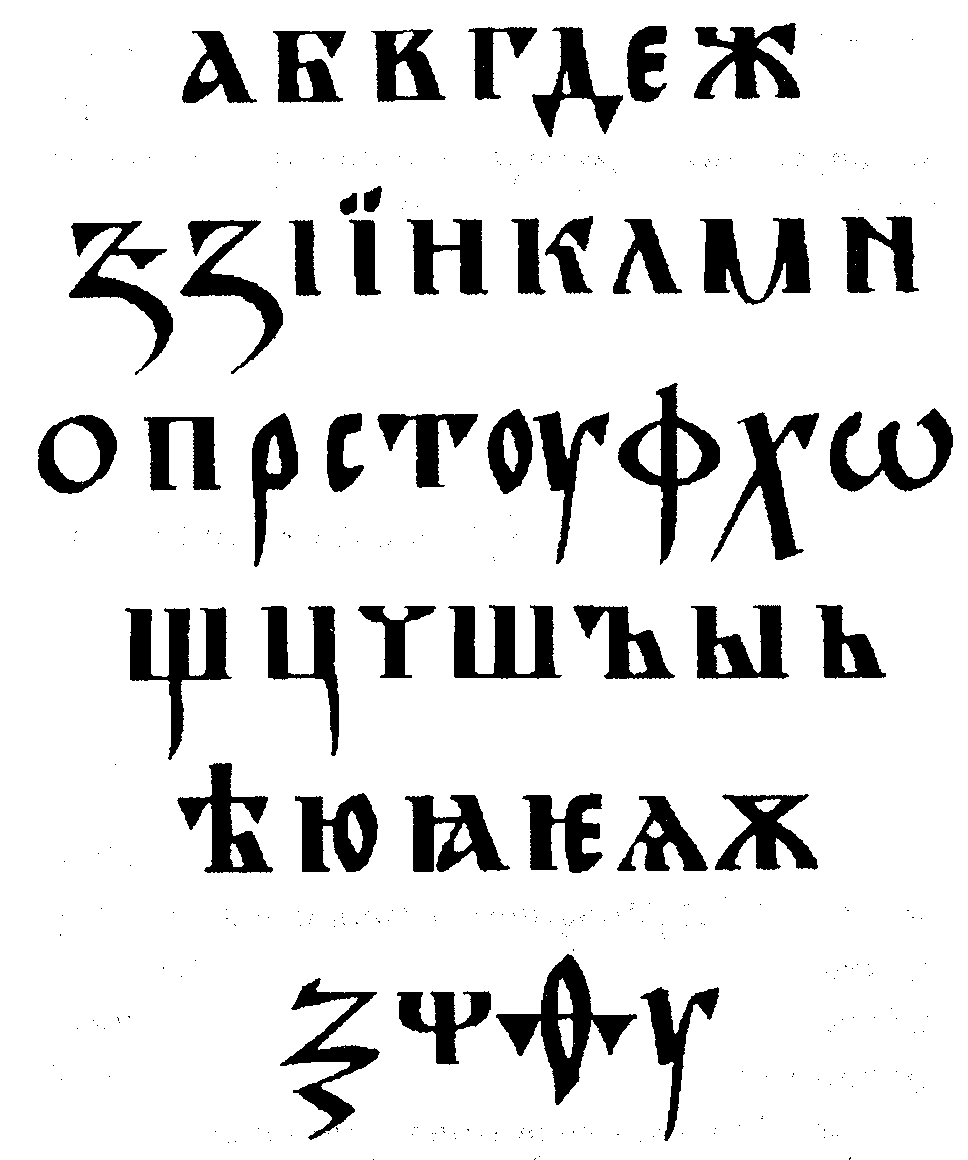 А Б В Г Д Е Ж
Ꙃ Ꙁ І Ї И К Л М Н
О П Р С Т ОУ Ф Х Ѡ
Щ Ц Ч Ш Ъ Ы Ь
Ѣ Ю Ꙗ Ѥ Ѧ Ѫ
Ѯ Ѱ Ѳ Ѵ